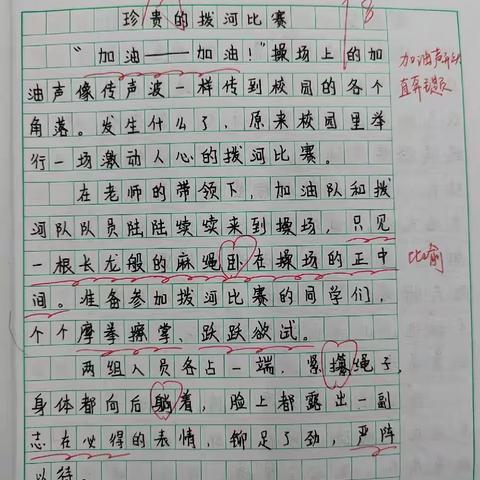 珍贵的拨河比赛
18
“加油——加油！”操场上的加
油声像传声波一样传到校园的各个
角落。发生什么了，原来校园里举
行一场激动人心的拨河比赛。
在老师的带领下，加油队和拨
河队队员陆陆续续来到操场，只见
一根长龙般的麻绳卧在操场的正中
间。准备参加拨河比赛的同学们，
个个摩拳擦掌、跃跃欲试。
两组人员各占一端，紧攥绳子，
身体都向后躺着，脸上都露出一副
志在必得的表情，铆足了劲，严阵
以待。
加油声
直奔主题
比喻